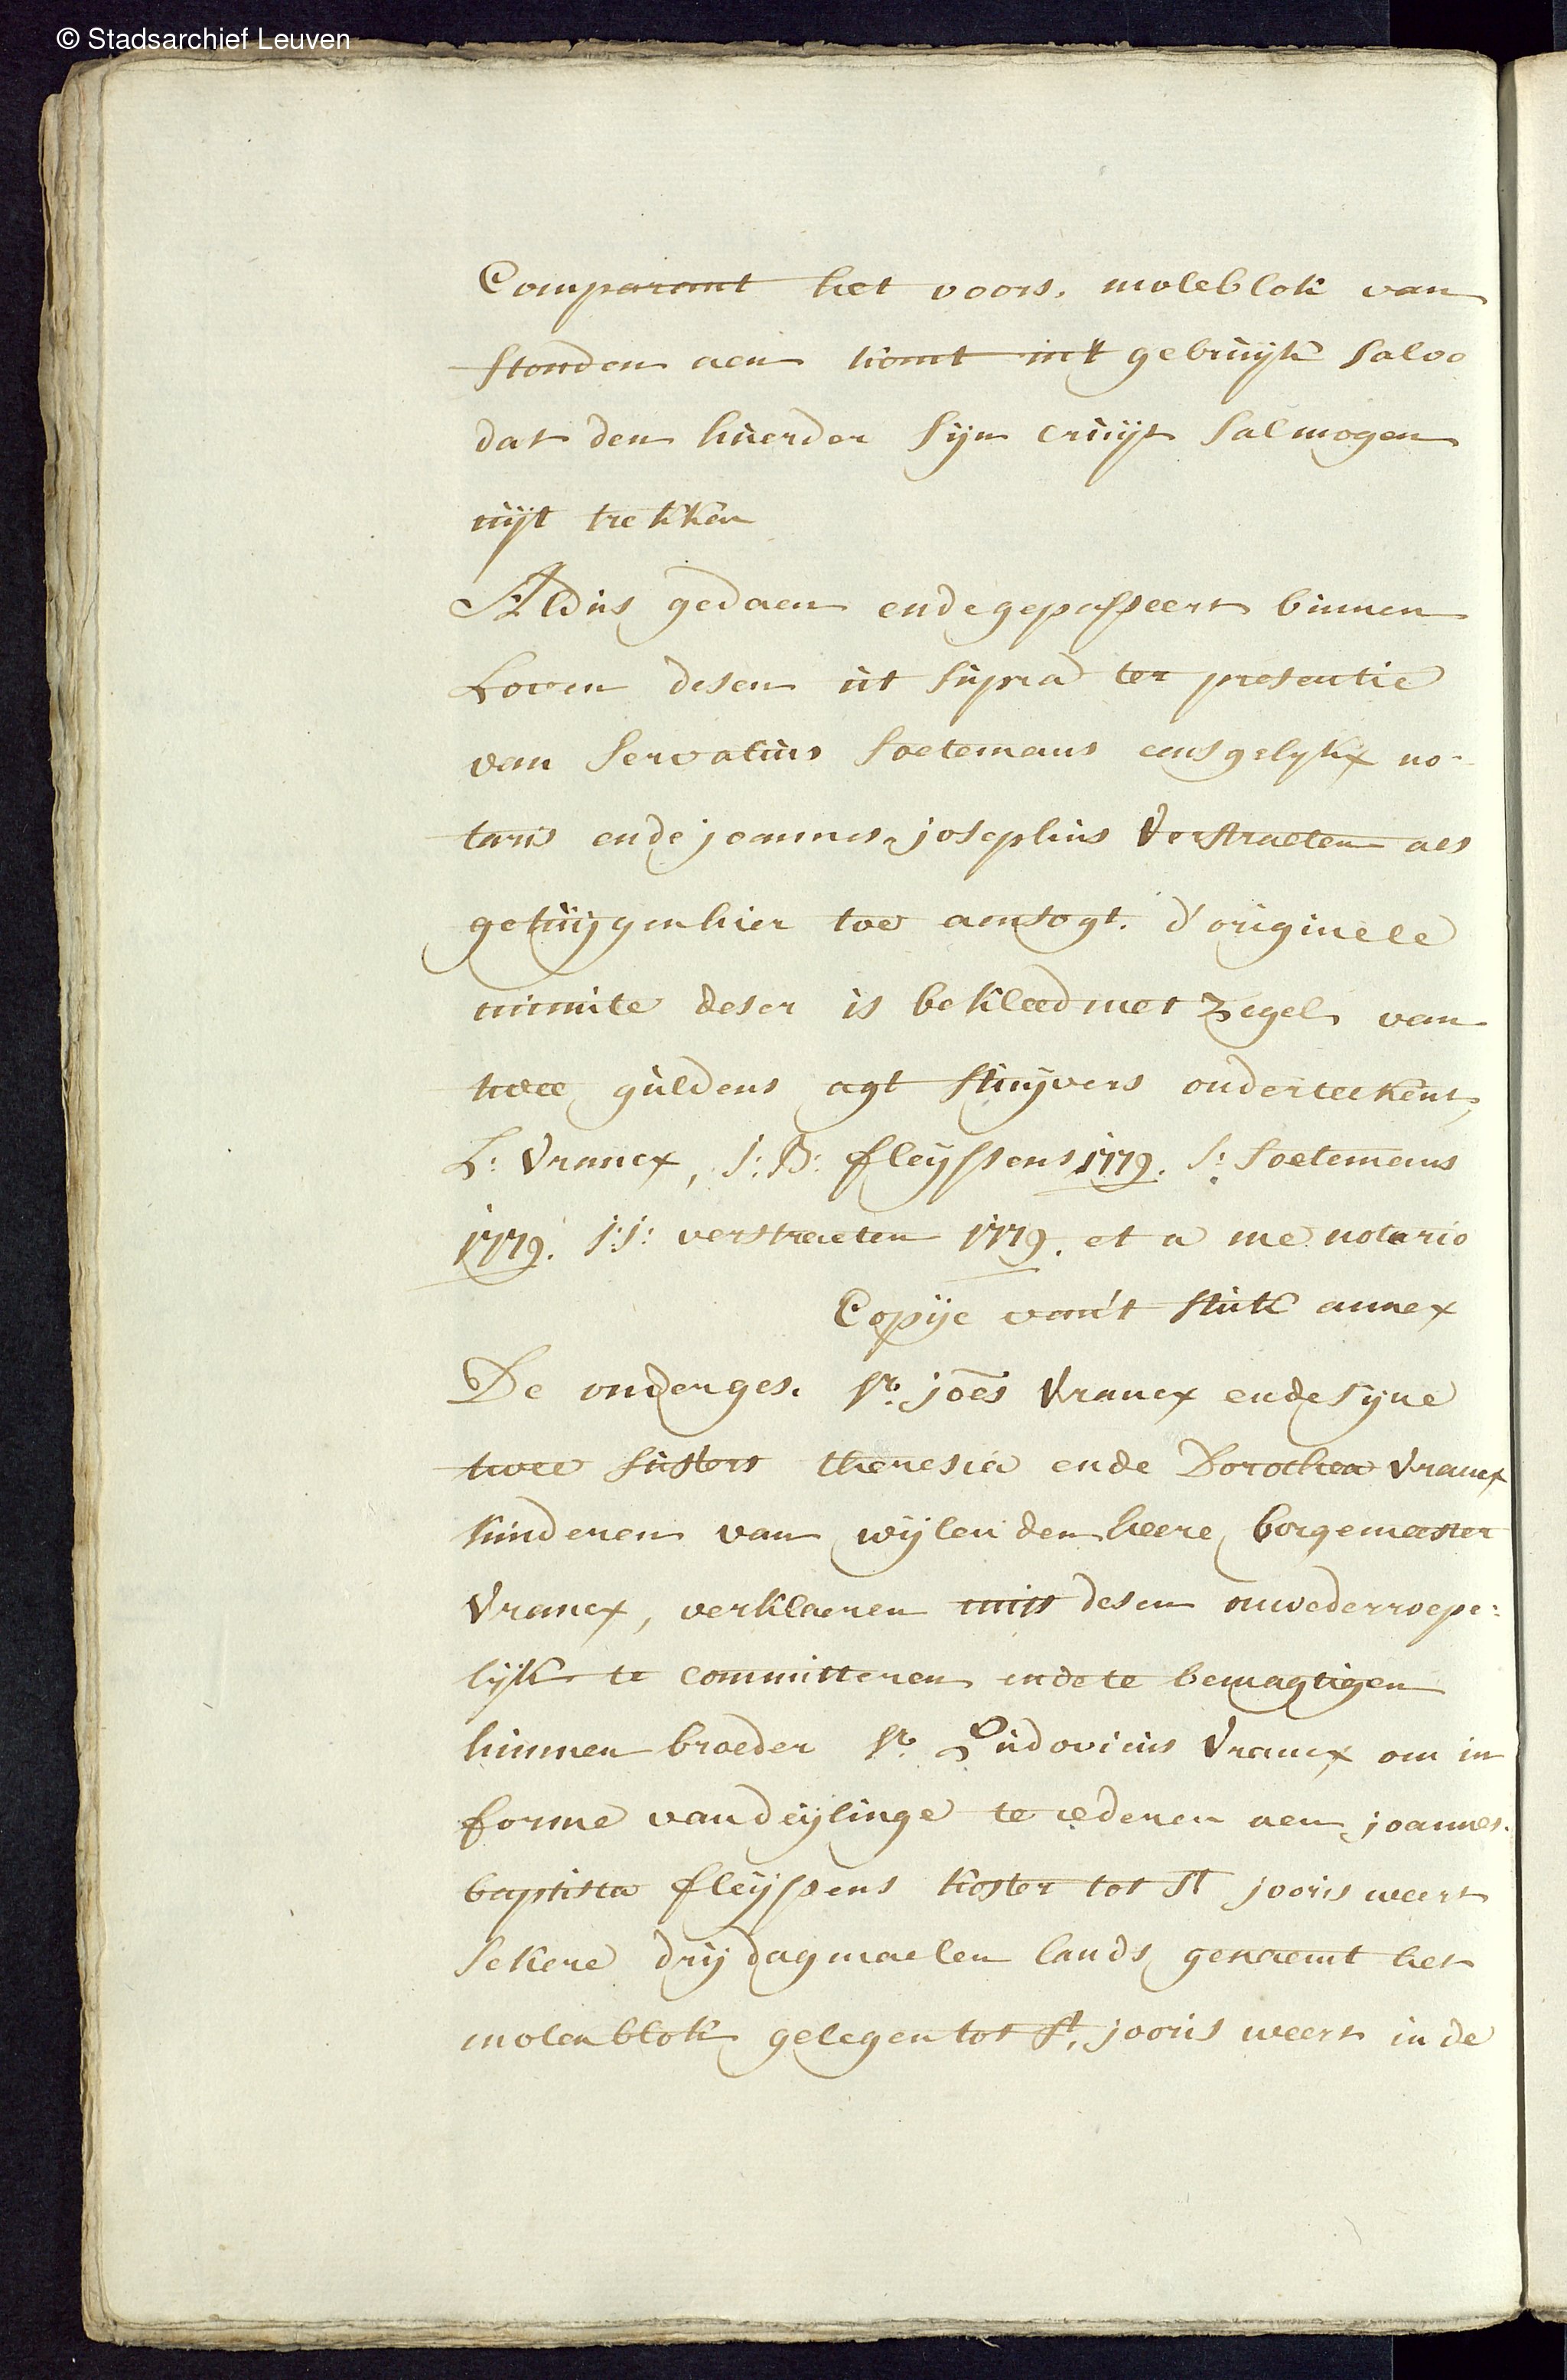 © Stadsarchief Leuven
Comparant het voors. moleblok van
stonden aen komt in't gebruijk salvo
dat den huerder sijn cruijt sal mogen
uijt trekken
Aldus gedaen ende gepasseert binnen
Loven desen ut supra ter presentie
van Servatius Soetemans eensgelykx no-
taris ende joannes josephus Verstraeten als
getuijgen hier toe aensogt. d'originele
minute deser is bekleed met zegel van
twee guldens agt stuijvers onderteekent
L: Vrancx, J: B: fleijssens 1779. S: Soetemans
1779. J: J: verstraeten 1779. et a me notario
Copije van't stuk annex
De onderges. Sr. joēs Vrancx ende sijne
twee susters theresia ende Dorothea Vrancx
kinderen van wijlen den heere borgemeester
Vrancx, verklaeren mits desen onwederroepe:
lijk te committeren ende te bemagtigen
hunnen broeder Sr. Ludovicus Vrancx om in
forme van deijlinge te cederen aen joannes
baptista fleijssens koster tot St jooris weert
sekere drij dagmaelen lands genaemt het
molenblok gelegen tot St. jooris weert in de